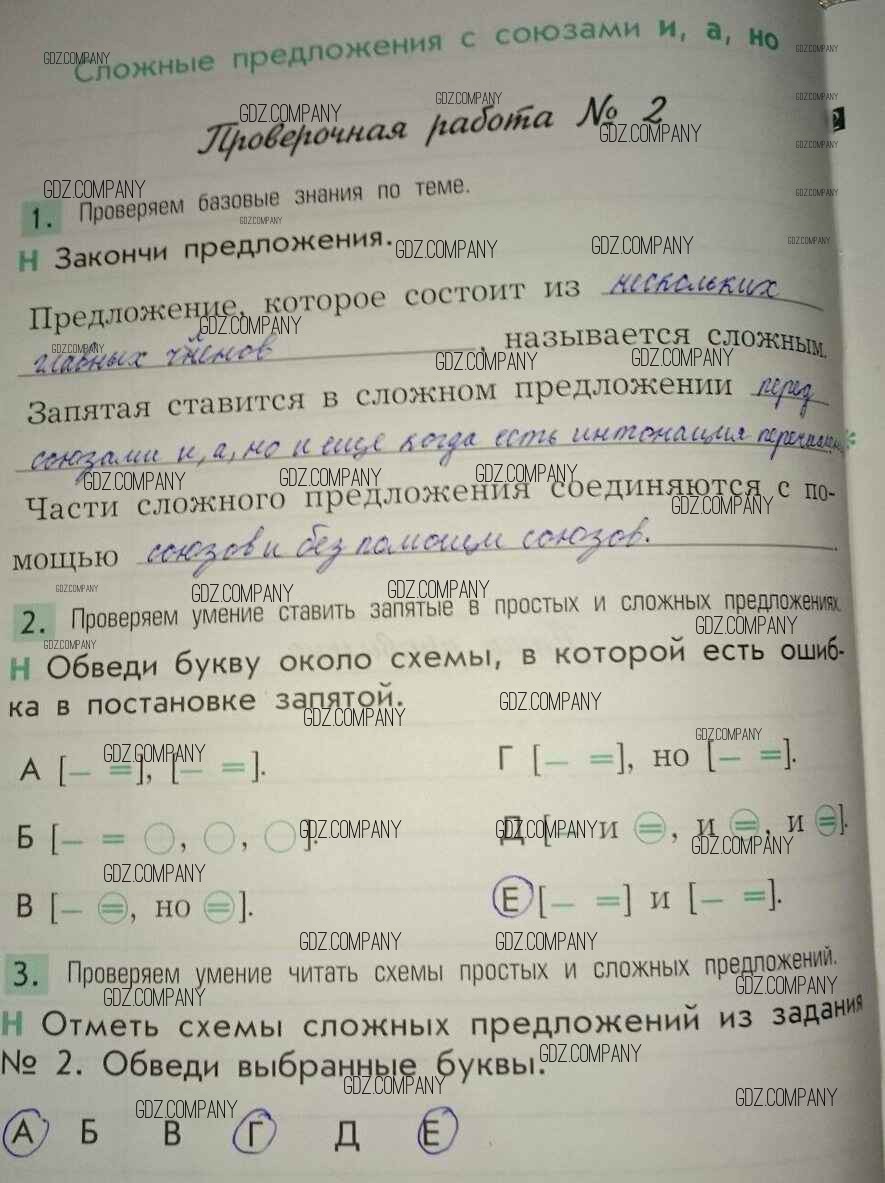 Сложные предложения с союзами и, а, но
Проверочная работа № 2
1. Проверяем базовые знания по теме.
Н Закончи предложения.
Предложение, которое состоит из нескольких
главных членов, называется сложным.
Запятая ставится в сложном предложении перед
союзами и, а, но и еще когда есть интонация
Части сложного предложения соединяются с по-
мощью союзов и без помощи союзов.
2. Проверяем умение ставить запятые в простых и сложных предложениях.
Н Обведи букву около схемы, в которой есть ошиб-
ка в постановке запятой.
А [– =], [– =].
Г [– =], но [– =].
Б [– = ○, ○, ○].
Д [– и =, и =, и =].
В [– =, но =].
Е [– =] и [– =].
3. Проверяем умение читать схемы простых и сложных предложений.
Н Отметь схемы сложных предложений из задания
№ 2. Обведи выбранные буквы.
А Б В Г Д Е
GDZ.COMPANY